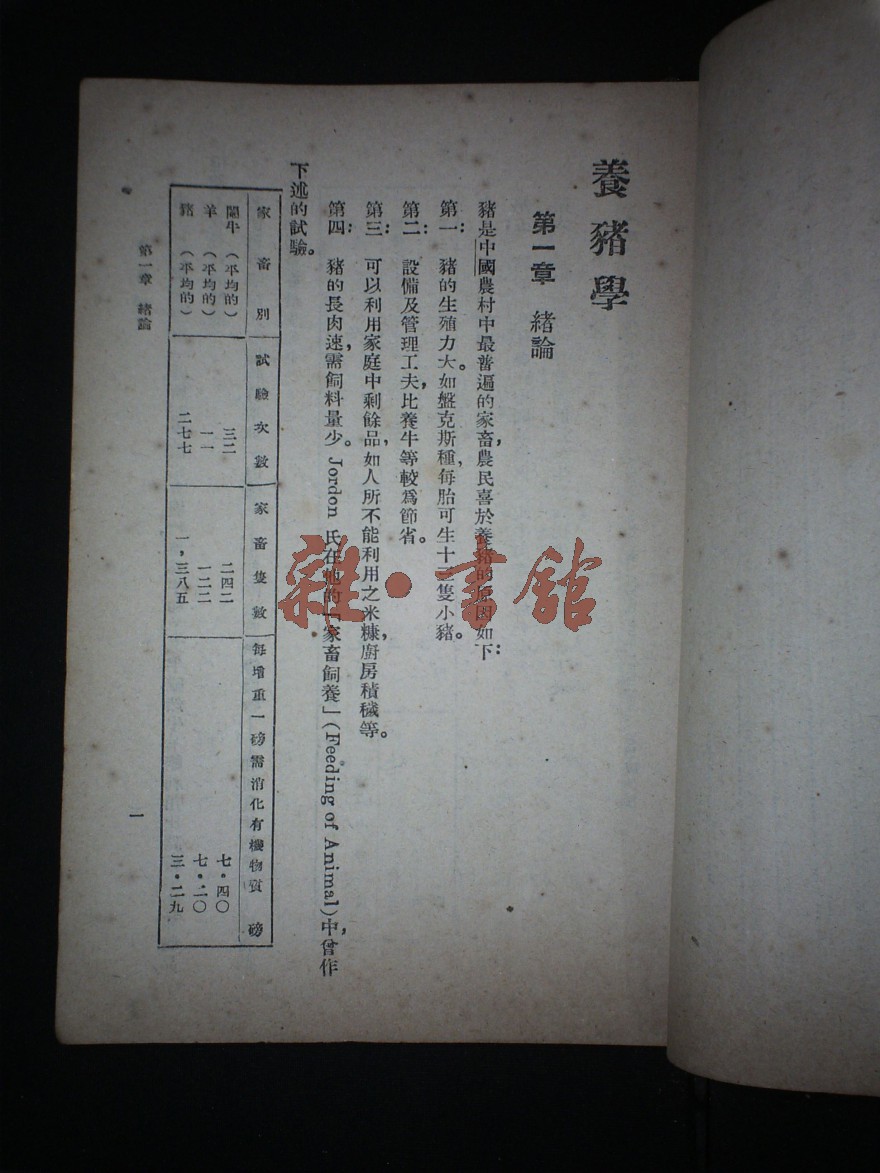 養豬學
第一章 緒論
豬是中國農村中最普遍的家畜，農民喜於養豬的原因如下：
第一：豬的生殖力大。如盤克斯種，每胎可生十三隻小豬。
第二：設備及管理工夫，比養牛等較爲節省。
第三：可以利用家庭中剩餘品，如人所不能利用之米糠，廚房積穢等。
第四：豬的長肉速，需飼料量少。Jordon 氏在他的「家畜飼養」（Feeding of Animal）中，曾作
下述的試驗。
家畜別 試驗次數 家畜隻數 每增重一磅需消化有機物質 磅
閹牛（平均的） 三二 二四二 七・四〇
羊（平均的） 一一 一二二 七・二〇
豬（平均的） 二七七 一，三八五 三・二九
第一章 緒論
一
雜・書館